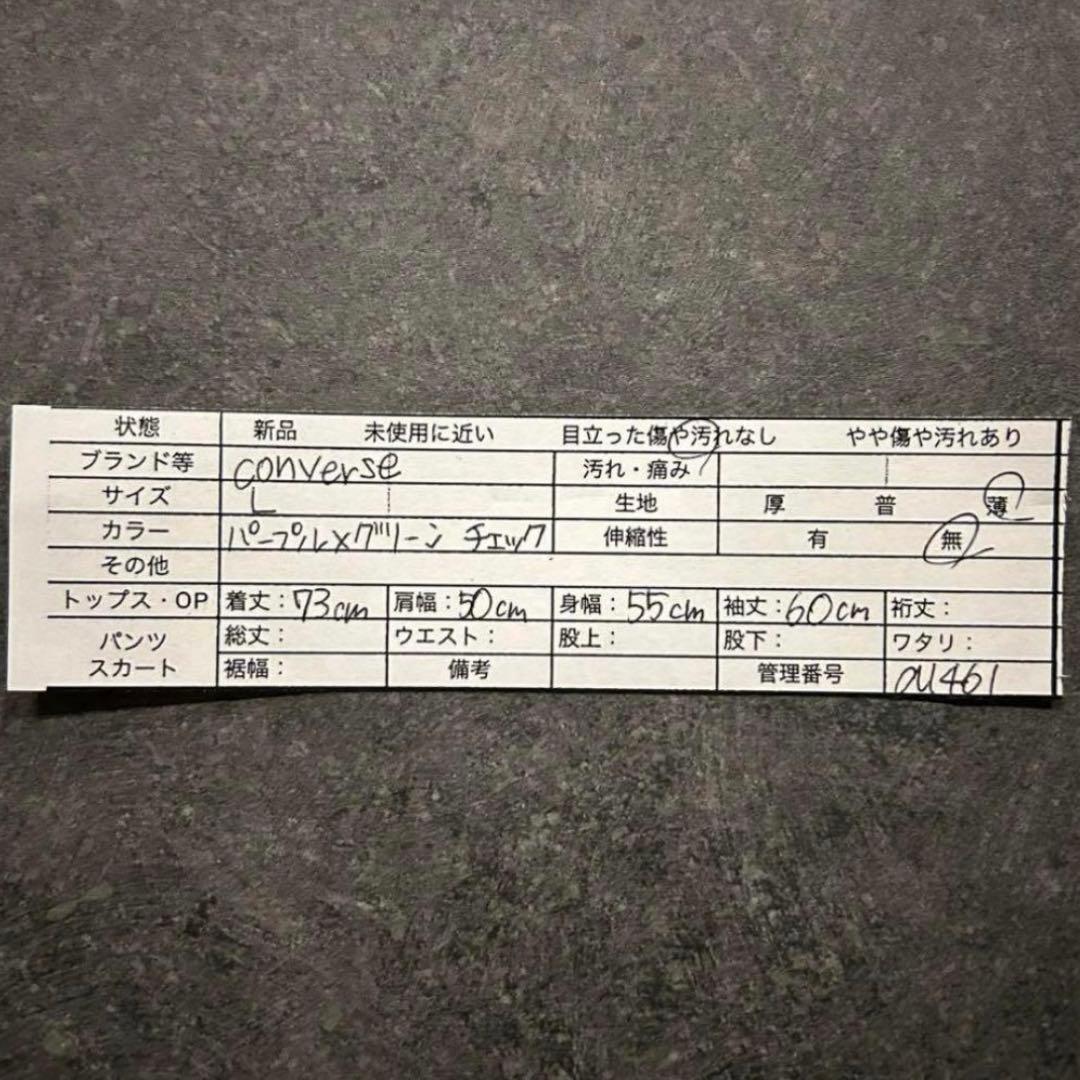 状態 新品 未使用に近い 目立った傷や汚れなし やや傷や汚れあり
ブランド等 converse 汚れ・痛み
サイズ L 生地 厚 普 薄
カラー パープル×グリーン チェック 伸縮性 有 無
その他
トップス・OP 着丈：73cm 肩幅：50cm 身幅：55cm 袖丈：60cm 裄丈：
パンツ スカート 総丈： ウエスト： 股上： 股下： ワタリ：
裾幅： 備考 管理番号